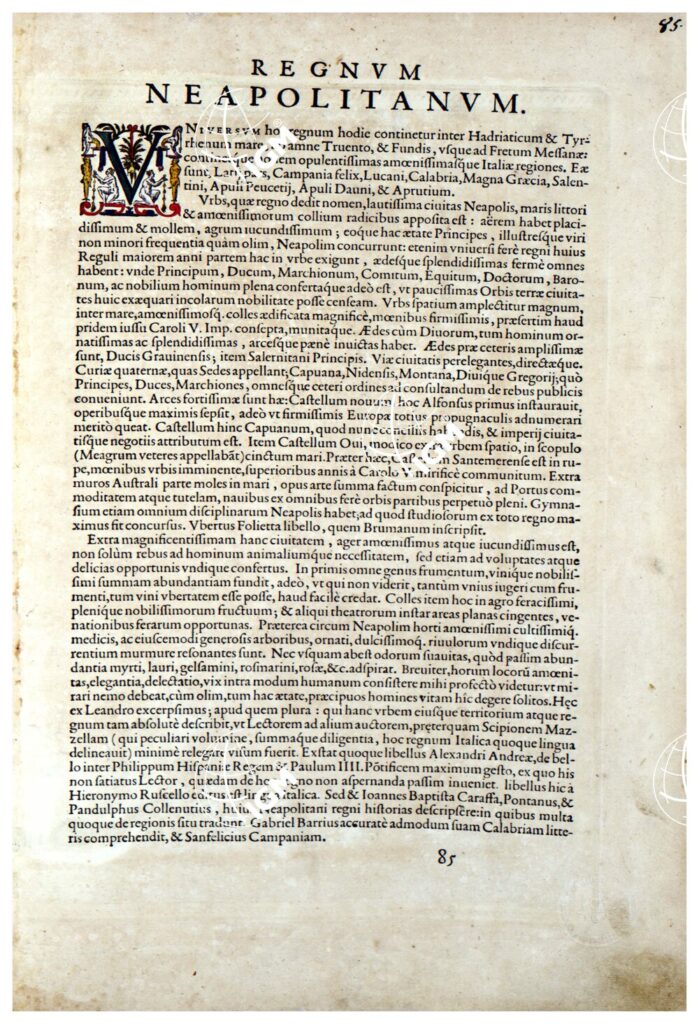 85.
REGNVM
NEAPOLITANVM.
VNIVERSVM hoc regnum hodie continetur inter Hadriaticum & Tyr-
rhenum mare, ab amne Truento, & Fundis, vsque ad Fretum Messanæ:
continetque opulentissimas amœnissimasque Italiæ regiones. Eæ
sunt, Latij pars, Campania felix, Lucani, Calabria, Magna Græcia, Salen-
tini, Apuli Peucetij, Apuli Dauni, & Aprutium.
Vrbs, quæ regno dedit nomen, lautissima ciuitas Neapolis, maris littori
& amœnissimorum collium radicibus apposita est: aërem habet placi-
dissimum & mollem, agrum iucundissimum; eoque hac ætate Principes, illustresque viri
non minori frequentia quàm olim, Neapolim concurrunt: etenim vniuersi ferè regni huius
Reguli maiorem anni partem hac in vrbe exigunt, ædesque splendidissimas fermè omnes
habent: vnde Principum, Ducum, Marchionum, Comitum, Equitum, Doctorum, Baro-
num, ac nobilium hominum plena confertaque adeò est, vt paucissimas Orbis terræ ciuita-
tes huic exæquari incolarum nobilitate posse censeam. Vrbs spatium amplectitur magnum,
inter mare, amœnissimosq. colles ædificata magnificè, mœnibus firmissimis, præsertim haud
pridem iussu Caroli V. Imp. consepta, munitaque. Ædes cùm Diuorum, tum hominum or-
natissimas ac splendidissimas, arcesque pænè inuictas habet. Ædes præ ceteris amplissimæ
sunt, Ducis Grauinensis; item Salernitani Principis. Viæ ciuitatis perelegantes, directæque.
Curiæ quaternæ, quas Sedes appellant; Capuana, Nidensis, Montana, Diuique Gregorij; quò
Principes, Duces, Marchiones, omnesque ceteri ordines ad consultandum de rebus publicis
conueniunt. Arces fortissimæ sunt hæ: Castellum nouum hoc Alfonsus primus instaurauit,
operibusque maximis sepsit, adeò vt firmissimis Europæ totius propugnaculis adnumerari
meritò queat. Castellum hinc Capuanum, quod nunc conciliis habendis, & imperij ciuita-
tisque negotiis attributum est. Item Castellum Oui, modico extra vrbem spatio, in scopulo
(Meagrum veteres appellabāt) cinctum mari. Præter hæc, Castellum Santemerense est in ru-
pe, mœnibus vrbis imminente, superioribus annis à Carolo V. mirificè communitum. Extra
muros Australi parte moles in mari, opus arte summa factum conspicitur, ad Portus com-
moditatem atque tutelam, nauibus ex omnibus ferè orbis partibus perpetuò pleni. Gymna-
sium etiam omnium disciplinarum Neapolis habet; ad quod studiosorum ex toto regno ma-
ximus fit concursus. Vbertus Folietta libello, quem Brumanum inscripsit.
Extra magnificentissimam hanc ciuitatem, ager amœnissimus atque iucundissimus est,
non solùm rebus ad hominum animaliumque necessitatem, sed etiam ad voluptates atque
delicias opportunis vndique confertus. In primis omne genus frumentum, vinique nobilis-
simi summam abundantiam fundit, adeò, vt qui non viderit, tantùm vnius iugeri cum fru-
menti, tum vini vbertatem esse posse, haud facilè credat. Colles item hoc in agro feracissimi,
plenique nobilissimorum fructuum; & aliqui theatrorum instar areas planas cingentes, ve-
nationibus ferarum opportunas. Præterea circum Neapolim horti amœnissimi cultissimiq.
medicis, ac eiuscemodi generosis arboribus, ornati, dulcissimoq. riuulorum vndique discur-
rentium murmure resonantes sunt. Nec vsquam abest odorum suauitas, quòd passim abun-
dantia myrti, lauri, gelsamini, rosmarini, rosæ, &c. adspirat. Breuiter, horum locorū amœni-
tas, elegantia, delectatio, vix intra modum humanum consistere mihi profectò videtur: vt mi-
rari nemo debeat, cùm olim, tum hac ætate, præcipuos homines vitam hîc degere solitos. Hęc
ex Leandro excerpsimus; apud quem plura: qui hanc vrbem eiusque territorium atque re-
gnum tam absolutè describit, vt Lectorem ad alium auctorem, præterquam Scipionem Maz-
zellam (qui peculiari volumine, summaque diligentia, hoc regnum Italica quoque lingua
delineauit) minimè relegare visum fuerit. Exstat quoque libellus Alexandri Andreæ, de bel-
lo inter Philippum Hispaniæ Regem & Paulum IIII. Pōtificem maximum gesto, ex quo his
non satiatus Lector, quædam de hoc regno non aspernanda passim inueniet. libellus hic à
Hieronymo Ruscello editus est lingua Italica. Sed & Ioannes Baptista Caraffa, Pontanus, &
Pandulphus Collenutius, huius Neapolitani regni historias descripsêre: in quibus multa
quoque de regionis situ tradunt. Gabriel Barrius accuratè admodum suam Calabriam litte-
ris comprehendit, & Sanfelicius Campaniam.
85